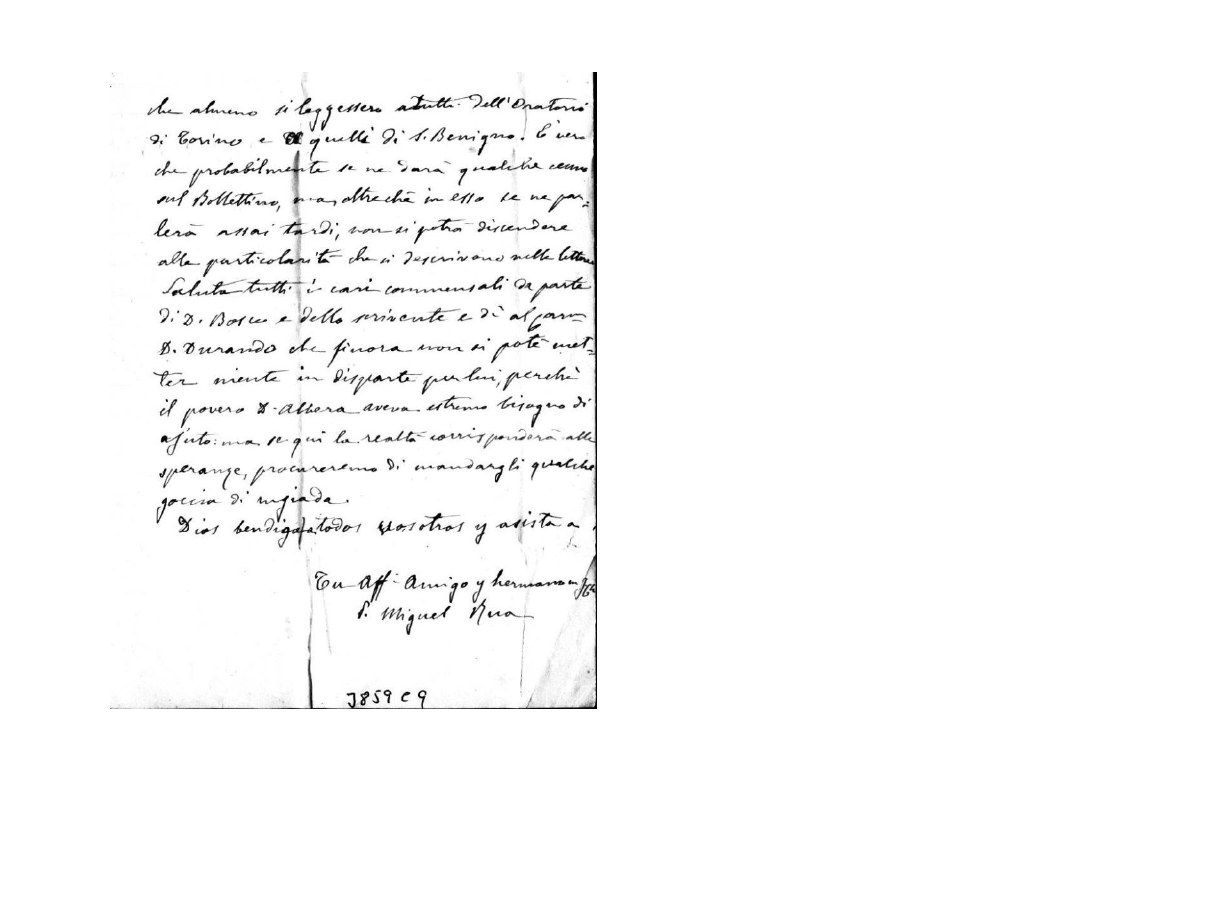 che almeno si leggessero a tutti dell'Oratorio
di Torino e a quelli di S. Benigno. È vero
che probabilmente se ne darà qualche cenno
sul Bollettino, ma, oltrechè in esso se ne par=
lerà assai tardi, non si potrà discendere
alle particolarità che si descrivono nelle lettere
Saluta tutti i cari commensali da parte
di D. Bosco e dello scrivente e dì al caro
D. Durando che finora non si potè met=
ter niente in disparte per lui, perchè
il povero D. Albera aveva estremo bisogno di
ajuto: ma se qui la realtà corrisponderà alle
speranze, procureremo di mandargli qualche
goccia di rugiada.
Dios bendiga a todos vosotros y asista a
Tu Aff. Amigo y hermano in
P. Miguel Rua
J859 C9